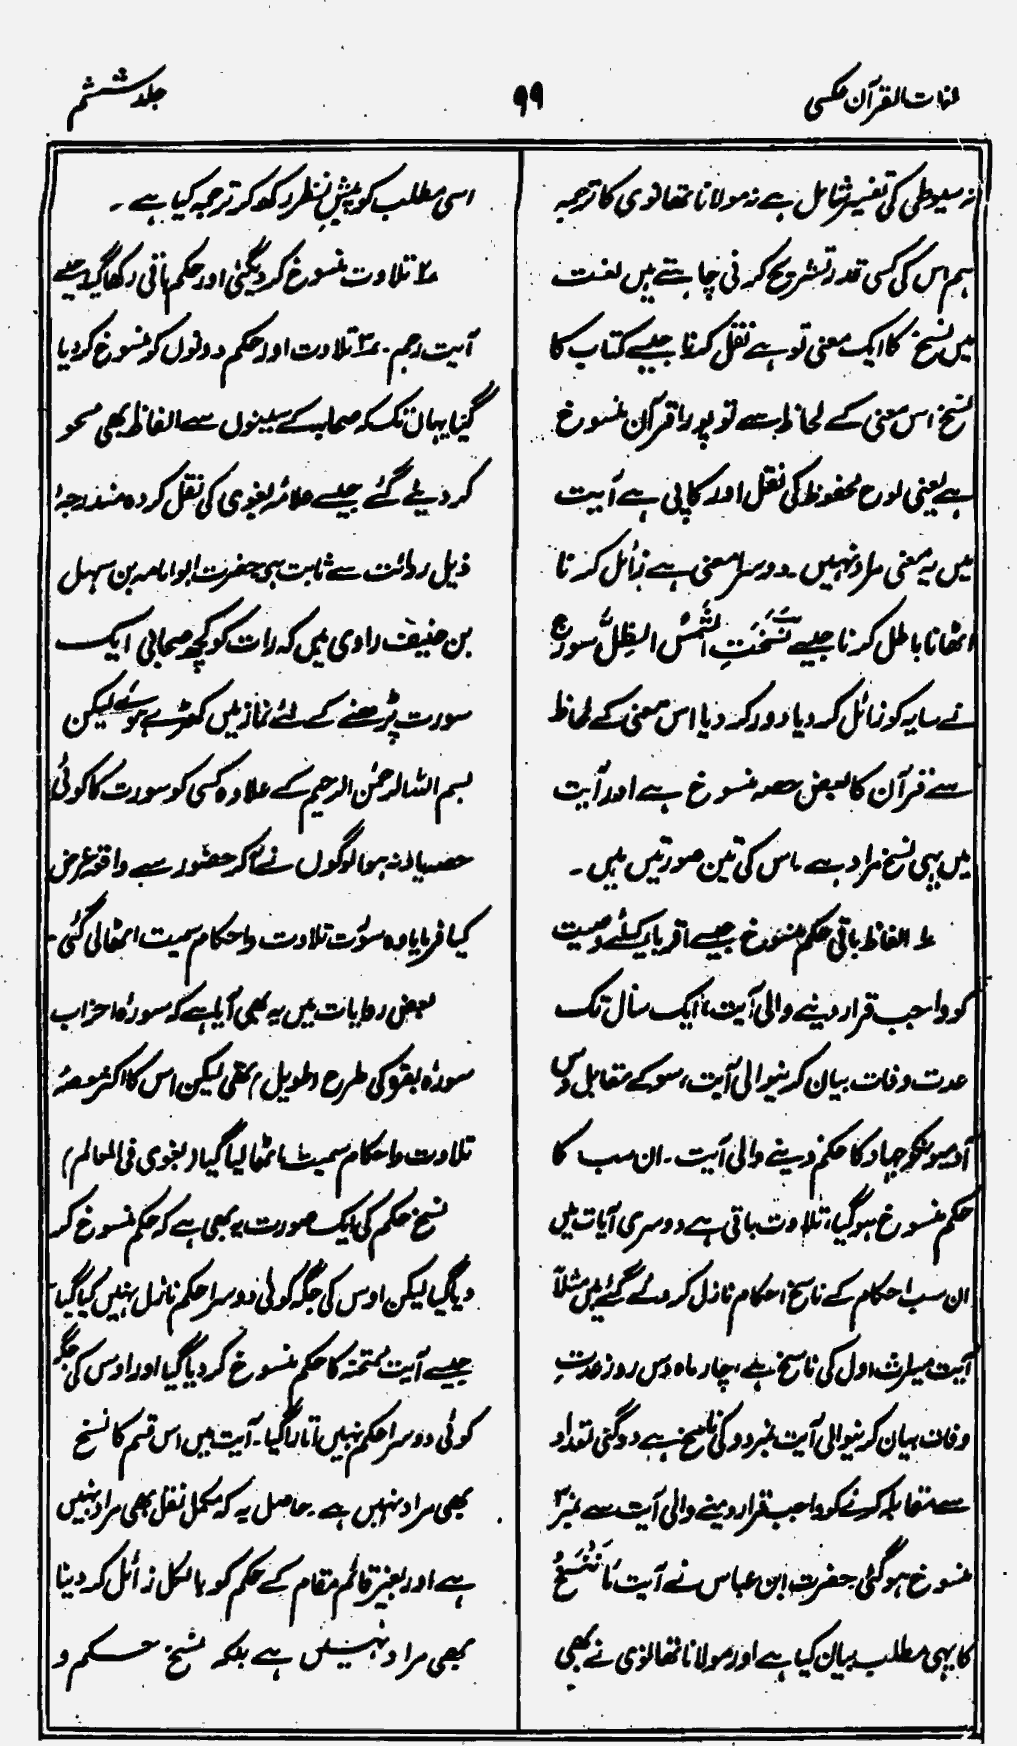 لغات القرآن عکسی
۹۹
جلد ششم
نہ سیوطی کی تفسیر شامل ہے نہ مولانا تھانوی کا ترجمہ
ہم اس کی کسی قدر تشریح کرنی چاہتے ہیں لغت
میں نسخ کا ایک معنی تو ہے نقل کرنا جیسے کتاب کا
نسخ اس معنی کے لحاظ سے تو پورا قرآن منسوخ
ہے یعنی لوح محفوظ کی نقل اور کاپی ہے آیت
میں یہ معنی مراد نہیں ۔ دوسرا معنی ہے زائل کرنا
اٹھانا باطل کرنا جیسے نَسَخَتِ الشَّمْسُ الظِلَّ سورج
نے سایہ کو زائل کر دیا دور کر دیا اس معنی کے لحاظ
سے قرآن کا بعض حصہ منسوخ ہے اور آیت
میں یہی نسخ مراد ہے ۔ اس کی تین صورتیں ہیں ۔
۱ الفاظ باقی حکم منسوخ جیسے اقربا کیلئے وصیت
کو واجب قرار دینے والی آیت، ایک سال تک
عدت وفات بیان کرنیوالی آیت، سو کے مقابل دس
آدمیونکو جہاد کا حکم دینے والی آیت ۔ ان سب کا
حکم منسوخ ہو گیا، تلاوت باقی ہے دوسری آیات میں
ان سب احکام کے ناسخ احکام نازل کر دئے گئے ہیں مثلاً
آیت میراث اول کی ناسخ ہے، چار ماہ دس روز عدت
وفات بیان کرنیوالی آیت نمبر دو کی ناسخ ہے دوگنی تعداد
سے مقابلہ کرنے کو واجب قرار دینے والی آیت سے نمبر ۳
منسوخ ہو گئی حضرت ابن عباس نے آیت مَا نَنْسَخْ
کا یہی مطلب بیان کیا ہے اور مولانا تھانوی نے بھی
اسی مطلب کو پیش نظر رکھ کر ترجمہ کیا ہے ۔
۲ تلاوت منسوخ کر دیگئی اور حکم باقی رکھا گیا جیسے
آیت رجم ۔ ۳ تلاوت اور حکم دونوں کو منسوخ کر دیا
گیا یہاں تک کہ صحابہ کے سینوں سے الفاظ بھی محو
کر دیئے گئے جیسے علامہ بغوی کی نقل کردہ مندرجہٴ
ذیل روائت سے ثابت ہے حضرت ابو امامہ بن سہل
بن حنیف راوی ہیں کہ رات کو کچھ صحابی ایک
سورت پڑھنے کے لئے نماز میں کھڑے ہوئے لیکن
بسم اللہ الرحمٰن الرحیم کے علاوہ کسی کو سورت کا کوئی
حصہ یاد نہ ہوا لوگوں نے آ کر حضور سے واقعہ عرض
کیا فرمایا وہ سورت تلاوت و احکام سمیت اٹھالی گئی ۔
بعض روایات میں یہ بھی آیا ہے کہ سورہٴ احزاب
سورہٴ بقرہ کی طرح (طویل) تھی لیکن اس کا اکثر حصہ
تلاوت و احکام سمیت اٹھا لیا گیا (بغوی فی المعالم)
نسخ حکم کی ایک صورت یہ بھی ہے کہ حکم منسوخ کر
دیا گیا لیکن اوس کی جگہ کوئی دوسرا حکم نازل نہیں کیا گیا
جیسے آیت ممتحنہ کا حکم منسوخ کر دیا گیا اور اوس کی جگہ
کوئی دوسرا حکم نہیں اتارا گیا ۔ آیت میں اس قسم کا نسخ
بھی مراد نہیں ہے ۔ حاصل یہ کہ مکمل نقل بھی مراد نہیں
ہے اور بغیر قائم مقام کے حکم کو بالکل زائل کر دینا
بھی مراد نہیں ہے بلکہ نسخ حکم و